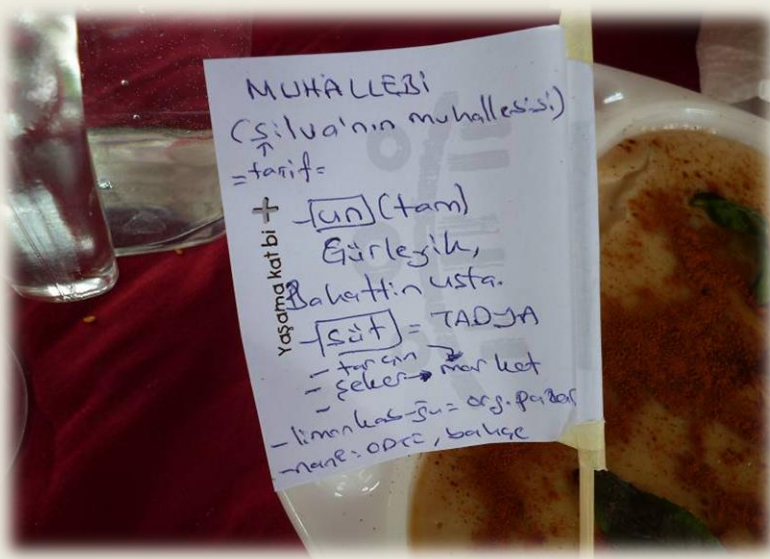 MUHALLEBİ
(Silva'nın muhallebisi)
=tarif=
-un (tam)
Gürleyik,
Bahattin usta.
-süt = TADYA
- tarçın
- şeker → market
- limon kabuğu = org. pazar
- nane: ODTÜ, bahçe
Yaşama kat bi +